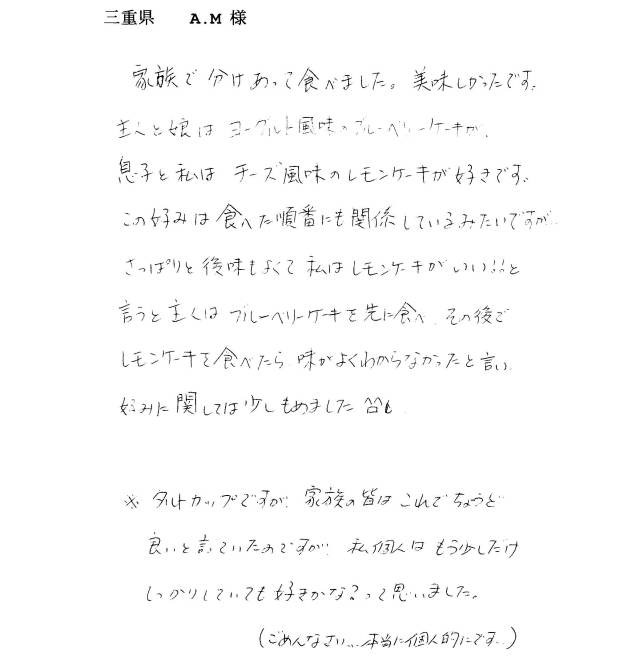 三重県 A.M 様
家族で分けあって食べました。美味しかったです。
主人と娘は ヨーグルト風味のブルーベリーケーキが、
息子と私は チーズ風味のレモンケーキが好きです。
この好みは食べた順番にも関係しているみたいですが…
さっぱりと後味もよくて 私はレモンケーキがいい!!と
言うと主人は ブルーベリーケーキを先に食べ、その後で
レモンケーキを食べたら 味がよくわからなかったと言い
好みに関しては少しもめました ^^;
※ タルトカップですが、家族の皆は これでちょうど
良いと言っていたのですが、私個人は もう少しだけ
しっかりしていても好きかな?って思いました。
(ごめんなさい…本当に個人的にです…)